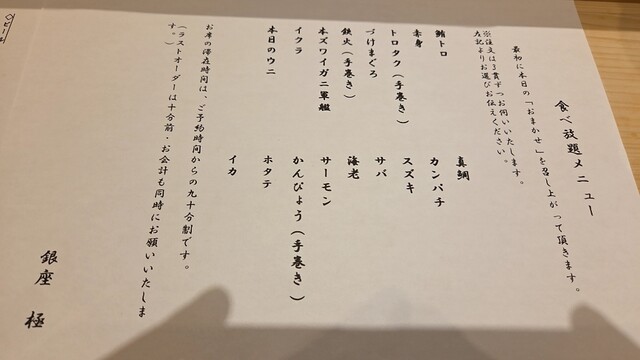 食べ放題メニュー
最初に本日の「おまかせ」を召し上がって頂きます。
※注文は３貫ずつお伺いいたします。
左記よりお選びお伝えください。
鮪トロ
赤身
トロタク（手巻き）
づけまぐろ
鉄火（手巻き）
本ズワイガニ軍艦
イクラ
本日のウニ
真鯛
カンパチ
スズキ
サバ
海老
サーモン
かんぴょう（手巻き）
ホタテ
イカ
お席の滞在時間は、ご予約時間からの九十分制です。
（ラストオーダーは十分前・お会計も同時にお願いいたします。）
銀座 極